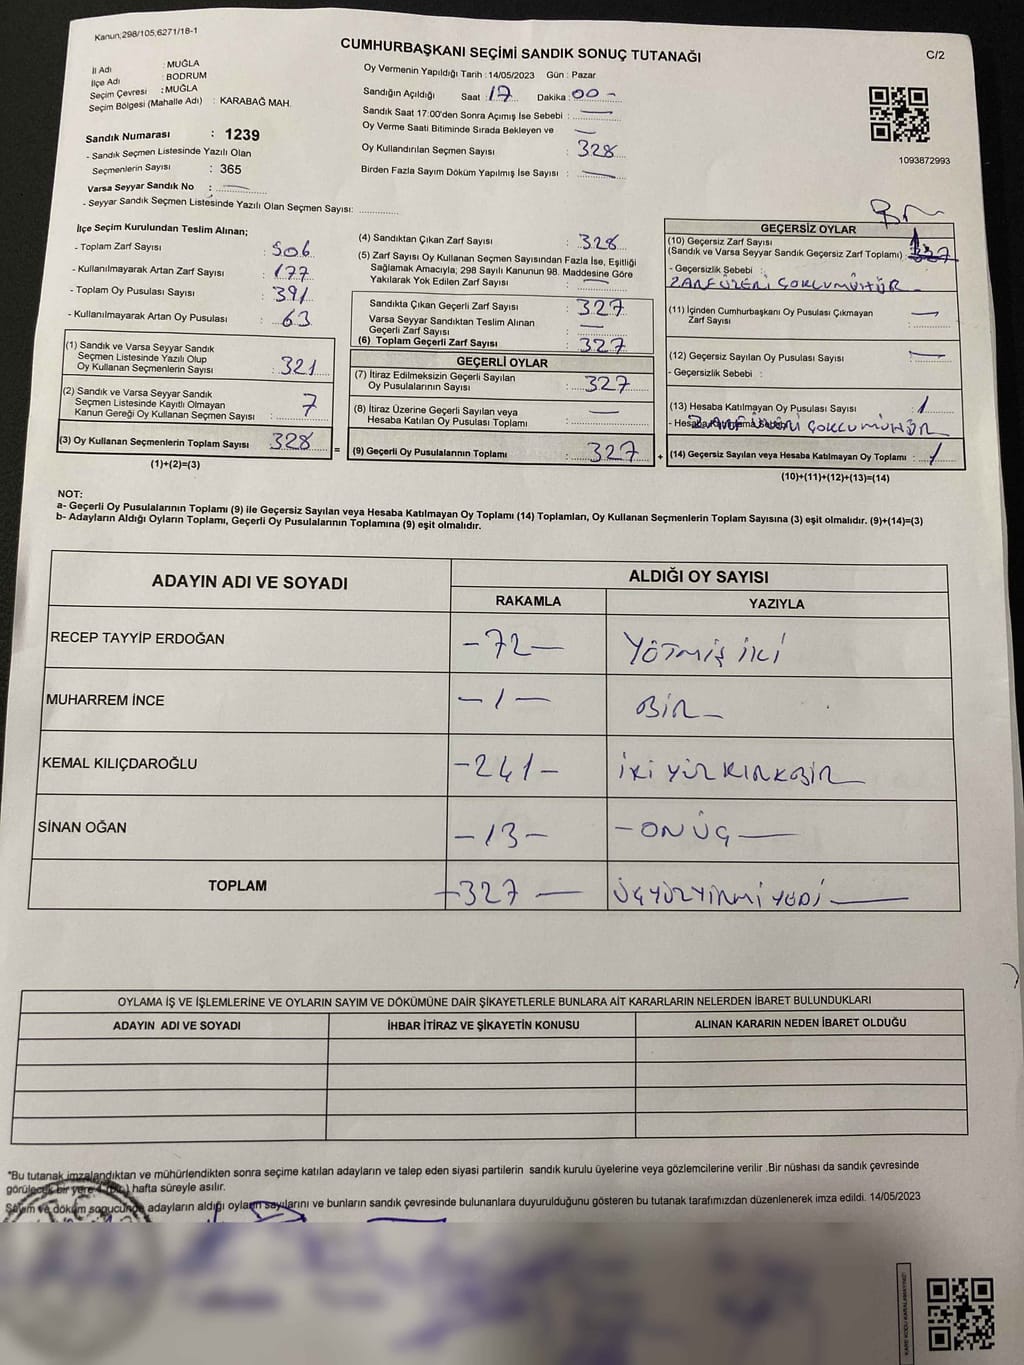 Kanun;298/105,6271/18-1
CUMHURBAŞKANI SEÇİMİ SANDIK SONUÇ TUTANAĞI
C/2
İl Adı : MUĞLA
İlçe Adı : BODRUM
Seçim Çevresi : MUĞLA
Seçim Bölgesi (Mahalle Adı) : KARABAĞ MAH.
Sandık Numarası : 1239
- Sandık Seçmen Listesinde Yazılı Olan
Seçmenlerin Sayısı : 365
Varsa Seyyar Sandık No : —
- Seyyar Sandık Seçmen Listesinde Yazılı Olan Seçmen Sayısı:
Oy Vermenin Yapıldığı Tarih : 14/05/2023 Gün : Pazar
Sandığın Açıldığı Saat : 17 Dakika : 00 -
Sandık Saat 17:00'den Sonra Açımış İse Sebebi : —
Oy Verme Saati Bitiminde Sırada Bekleyen ve —
Oy Kullandırılan Seçmen Sayısı : 328
Birden Fazla Sayım Döküm Yapılmış İse Sayısı : —
1093872993
İlçe Seçim Kurulundan Teslim Alınan;
- Toplam Zarf Sayısı : 506
- Kullanılmayarak Artan Zarf Sayısı : 177
- Toplam Oy Pusulası Sayısı : 391
- Kullanılmayarak Artan Oy Pusulası : 63
(1) Sandık ve Varsa Seyyar Sandık
Seçmen Listesinde Yazılı Olup
Oy Kullanan Seçmenlerin Sayısı : 321
(2) Sandık ve Varsa Seyyar Sandık
Seçmen Listesinde Kayıtlı Olmayan
Kanun Gereği Oy Kullanan Seçmen Sayısı : 7
(3) Oy Kullanan Seçmenlerin Toplam Sayısı 328 =
(1)+(2)=(3)
(4) Sandıktan Çıkan Zarf Sayısı : 328
(5) Zarf Sayısı Oy Kullanan Seçmen Sayısından Fazla İse, Eşitliği
Sağlamak Amacıyla; 298 Sayılı Kanunun 98. Maddesine Göre
Yakılarak Yok Edilen Zarf Sayısı : —
Sandıkta Çıkan Geçerli Zarf Sayısı : 327
Varsa Seyyar Sandıktan Teslim Alınan
Geçerli Zarf Sayısı : —
(6) Toplam Geçerli Zarf Sayısı : 327
GEÇERLİ OYLAR
(7) İtiraz Edilmeksizin Geçerli Sayılan
Oy Pusulalarının Sayısı : 327
(8) İtiraz Üzerine Geçerli Sayılan veya
Hesaba Katılan Oy Pusulası Toplamı : —
(9) Geçerli Oy Pusulalarının Toplamı : 327 +
GEÇERSİZ OYLAR
(10) Geçersiz Zarf Sayısı 1
(Sandık ve Varsa Seyyar Sandık Geçersiz Zarf Toplamı) : 327
- Geçersizlik Sebebi :
ZARF ÜZERİ ÇOKCUMÜHÜR -
(11) İçinden Cumhurbaşkanı Oy Pusulası Çıkmayan —
Zarf Sayısı :
(12) Geçersiz Sayılan Oy Pusulası Sayısı : —
- Geçersizlik Sebebi :
(13) Hesaba Katılmayan Oy Pusulası Sayısı : 1
ZARF ÜZERİ ÇOKCUMÜHÜR
(14) Geçersiz Sayılan veya Hesaba Katılmayan Oy Toplamı : 1
(10)+(11)+(12)+(13)=(14)
NOT:
a- Geçerli Oy Pusulalarının Toplamı (9) ile Geçersiz Sayılan veya Hesaba Katılmayan Oy Toplamı (14) Toplamları, Oy Kullanan Seçmenlerin Toplam Sayısına (3) eşit olmalıdır. (9)+(14)=(3)
b- Adayların Aldığı Oyların Toplamı, Geçerli Oy Pusulalarının Toplamına (9) eşit olmalıdır.
ADAYIN ADI VE SOYADI
ALDIĞI OY SAYISI
RAKAMLA YAZIYLA
RECEP TAYYİP ERDOĞAN -72- YÖTMİŞ İKİ
MUHARREM İNCE -1- BİR-
KEMAL KILIÇDAROĞLU -241- İKİ YÜZ KIRKBİR
SİNAN OĞAN -13- -ONÜÇ-
TOPLAM -327- ÜÇYÜZYİRMİ YEDİ-
OYLAMA İŞ VE İŞLEMLERİNE VE OYLARIN SAYIM VE DÖKÜMÜNE DAİR ŞİKAYETLERLE BUNLARA AİT KARARLARIN NELERDEN İBARET BULUNDUKLARI
ADAYIN ADI VE SOYADI İHBAR İTİRAZ VE ŞİKAYETİN KONUSU ALINAN KARARIN NEDEN İBARET OLDUĞU
*Bu tutanak imzalandıktan ve mühürlendikten sonra seçime katılan adayların ve talep eden siyasi partilerin sandık kurulu üyelerine veya gözlemcilerine verilir .Bir nüshası da sandık çevresinde
görülecek bir yere 1 (Bir) hafta süreyle asılır.
Sayım ve döküm sonucunda adayların aldığı oyların sayılarını ve bunların sandık çevresinde bulunanlara duyurulduğunu gösteren bu tutanak tarafımızdan düzenlenerek imza edildi. 14/05/2023